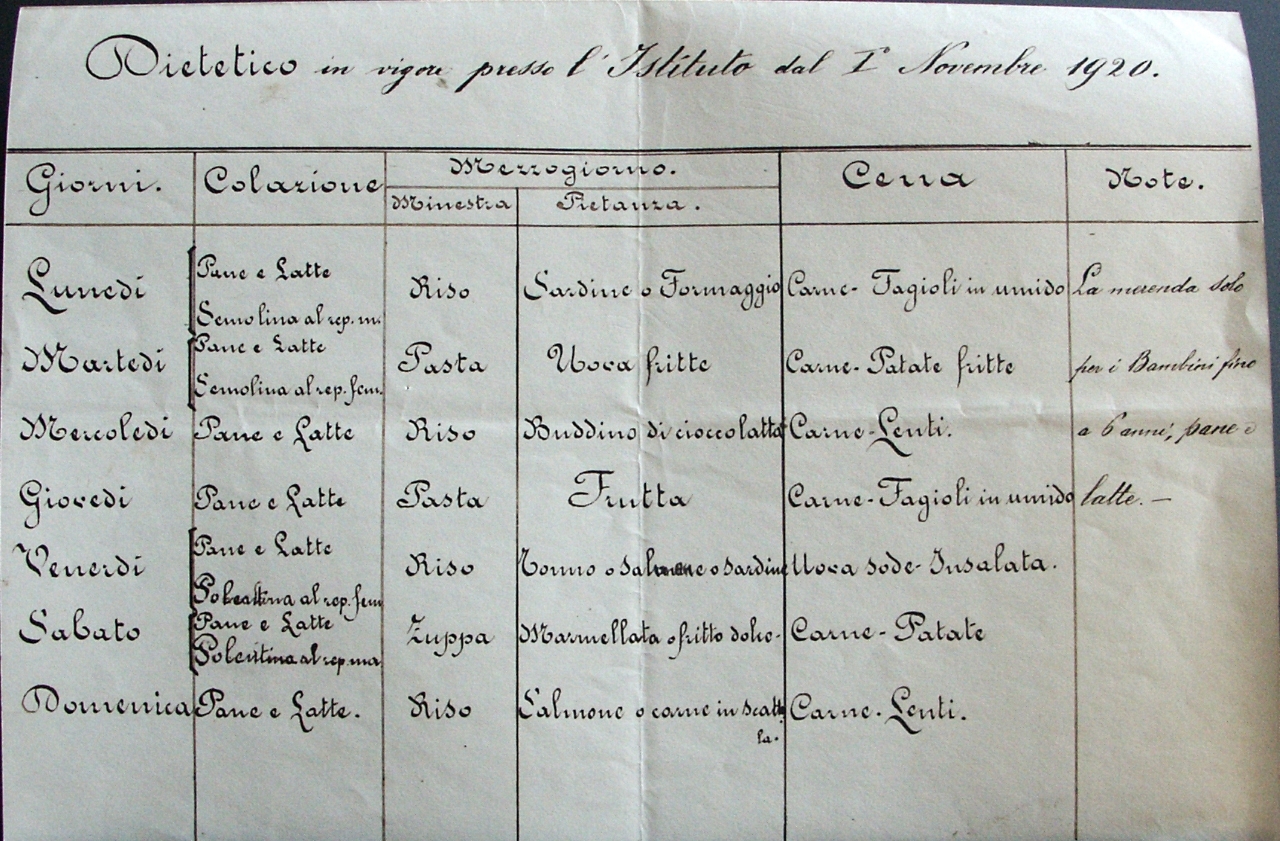 Dietetico in vigore presso l'Istituto dal I° Novembre 1920.
Giorni. Colazione Mezzogiorno. Cena Note.
Minestra Pietanza.
Lunedì Pane e Latte Riso Sardine o Formaggio Carne - Fagioli in umido La merenda solo
Semolina al rep. m.
Martedì Pane e Latte Pasta Uova fritte Carne - Patate fritte per i Bambini fino
Semolina al rep. fem.
Mercoledì Pane e Latte Riso Buddino di cioccolatta Carne - Lenti. a 6 anni, pane e
Giovedì Pane e Latte Pasta Frutta Carne - Fagioli in umido latte. —
Venerdì Pane e Latte Riso Tonno o Salmone o Sardine Uova sode - Insalata.
Polentina al rep. fem
Sabato Pane e Latte Zuppa Marmellata o fritto dolce - Carne - Patate
Polentina al rep. ma
Domenica Pane e Latte. Riso Salmone o carne in scatt Carne - Lenti.
la.